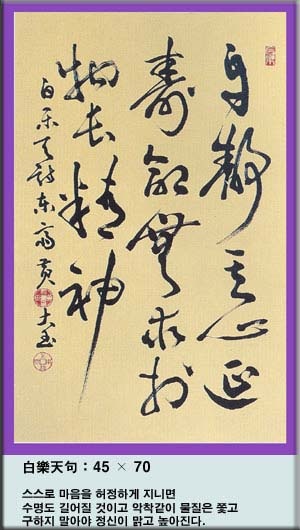 自靜其心延
壽命無求於
物長精神
白樂天詩東
白樂天句 : 45 × 70
스스로 마음을 허정하게 지니면
수명도 길어질 것이고 악착같이 물질은 쫓고
구하지 말아야 정신이 맑고 높아진다.